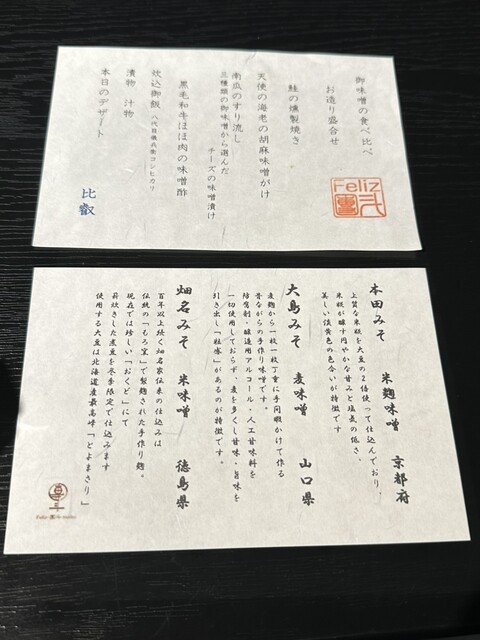 御味噌の食べ比べ
お造り盛合せ
鮭の燻製焼き
天使の海老の胡麻味噌がけ
南瓜のすり流し
三種類の御味噌から選んだ
チーズの味噌漬け
黒毛和牛ほほ肉の味噌酢
炊込御飯 八代目儀兵衛コシヒカリ
漬物 汁物
本日のデザート
比叡
Feliz
本田みそ 米麹味噌 京都府
上質な米糀を大豆の2倍使って仕込んでおり、
米糀が醸す円やかな甘みと塩気の低さ、
美しい淡黄色の色合いが特徴です
大島みそ 麦味噌 山口県
麦麹から一枚一枚丁寧に手間暇かけて作る
昔ながらの手作り味噌です。
防腐剤・醸造用アルコール・人工甘味料を
一切使用しておらず、麦を多くし甘味・旨味を
引き出し「粒感」があるのが特徴です。
畑名みそ 米味噌 徳島県
百年以上続く畑名家伝来の仕込みは
伝統の「もろ室」で製麹された手作り麹。
現在では珍しい「おくど」にて
薪炊きした煮豆を冬季限定で仕込みます
使用する大豆は北海道産最高峰「とよまさり」